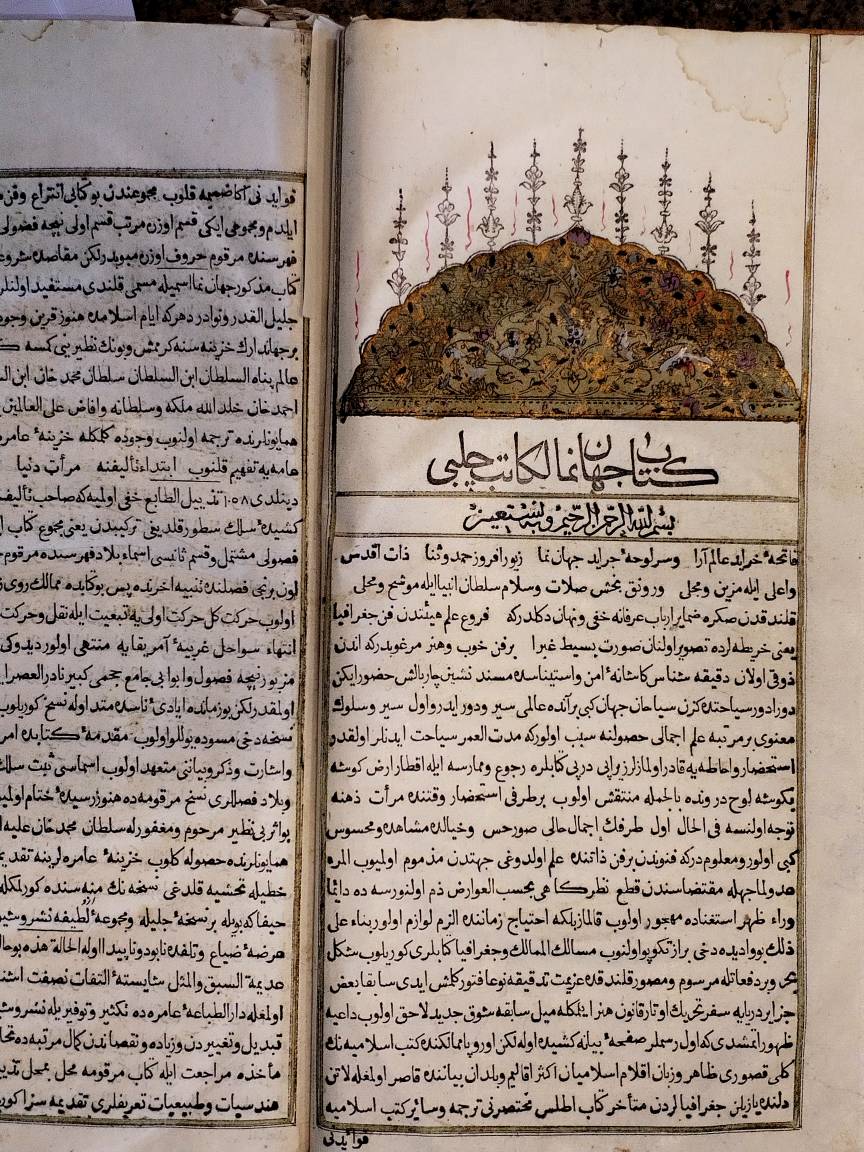 كتاب جهان نما لكاتب چلبي
بسم الله الرحمن الرحيم وبه نستعين
فاتحهٔ خرايد عالم آرا وسرلوحهٔ جرايد جهان نما زيور افروز حمد وثنا ذات اقدس
واعلى ايله مزين ومجلى ورونق بخش صلات وسلام سلطان انبيا ايله موشح ومحلى
قلندقدن صكره ضماير ارباب عرفانه خفى ونهان دكلدركه فروع علم هيئتندن فن جغرافيا
يعنى خريطه لرده تصوير اولنان صورت بسيط غبرا برفن خوب وهنر مرغوبدركه اندن
ذوقى اولان دقيقه شناس كاشانهٔ امن واستيناسده مسند نشين چاربالش حضور ايكن
دورادور سياحتده كزن سياحان جهان كبى برآنده عالمى سير ودور ايدر واول سير وسلوك
معنوى برمرتبه علم اجمالى حصولنه سبب اولوركه مدت العمر سياحت ايدنلر اولقدر
استحضار واحاطه يه قادر اولمازلر زيرا پى درپى كتابلره رجوع وممارسه ايله اقطار ارض كوشه
بكوشه لوح درونده بالجمله منتقش اولوب برطرفى استحضار وقتنده مرآت ذهنه
توجه اولنسه فى الحال اول طرفك اجمال حالى صورحس وخيالده مشاهد ومحسوس
كبى اولور ومعلومدركه فنوندن برفن ذاتنده علم اولدوغى جهتدن مذموم اولميوب المرء
عدو لما جهله مقتضاسندن قطع نظر كاهى بحسب العوارض ذم اولنورسه ده دائما
وراء ظهر استغناده مهجور اولوب قالماز بلكه احتياج زماننده الزم لوازم اولور بناء على
ذلك بو واديده دخى براز تكوپو اولنوب مسالك الممالك وجغرافيا كتابلرى كوريلوب شكل
بحر وبر دفعاتله مرسوم ومصور قلندقده عزيمت تدقيقه نوعا فتور كلمش ايدى سابقا بعض
جزاير دريايه سفر تحريك اوتار قانون هنر ايتمكله ميل سابقه شوق جديد لاحق اولوب داعيه
ظهور ايتمشدى كه اول رسملر صفحهٔ بيانه كشيده اوله لكن اوروپا ممالكنده كتب اسلاميه نك
كلى قصورى ظاهر وزبان اقلام اسلاميان اكثر اقاليم وبلدان بياننده قاصر اولمغله لاتن
دلنده يازيلن جغرافيالردن متأخر كتاب اطلس مختصرنى ترجمه وسائر كتب اسلاميه
فوايدنى
فوايدنى آكا ضميمه قلوب مجموعندن بو كتابى انتزاع وفن
ايلدم ومجموعى ايكى قسم اوزره مرتب قسم اولى نيچه فصولى
فهرسنده مرقوم حروف اوزره مبوبدر لكن مقاصده شروع
كتاب مذكور جهان نما اسميله مسمى قلندى مستفيد اولنلر
جليل القدر ونوادر دهركه ايام اسلامده هنوز قرين وجود
برجهاندارك خزينه سنه كرممش وبونك نظيرينى كسه
عالم پناه السلطان ابن السلطان سلطان محمد خان ابن
احمد خان خلد الله ملكه وسلطانه وافاض على العالمين
همايونلرنده ترجمه اولنوب وجوده كلمكله خزينهٔ عامره
عامه يه تفهيم قلنوب ابتداء تأليفنه مرآت دنيا
دينلدى ١٠٥٨ تذييل الطابع خفى اوليه كه صاحب تأليف
كشيدهٔ سلك سطور قلديغى تركيبدن يعنى مجموع كتاب
فصولى مشتمل وقسم ثانيسى اسماء بلاد فهرسده مرقوم
اون برنجى فصلنده تنبيه اخرنده پس بو كتابده ممالك روى
اولوب حركت كل حركت اولى يه تبعيت ايله نقل وحركت
انتهاء سواحل غربيهٔ آمريقايه منتهى اولور ديدوكى
مزبور نيچه فصول وابوابى جامع حجمى كبير نادر العصر
اولمقدر لكن بو زمانده ايادئ ناسده متداوله نسخ كوريلوب
نسخه دخى مسوده بوللو اولوب مقدمهٔ كتابده امر
واشارت وذكر وبياننى متعهد اولوب اسماسى ثبت سلك
وبلاد فصللرى نسخ مرقومه ده هنوز رسيدهٔ ختام اولميوب
بو اثر بى نظير مرحوم ومغفورله سلطان محمد خان عليه
همايونلرنده حصوله كلوب خزينهٔ عامره لرينه تقديم
خطيله تحشيه قلدغى نسخه نك منه سنده كورلمكله
حيفا كه بويله بر نسخهٔ جليله ومجموعهٔ لطيفه نشر و
عرضهٔ ضياع وتلفده نابود وناپيدا اوله الحالة هذه بو
عديمة السبق والمثل شايستهٔ التفات نصفت
اولمغله دار الطباعهٔ عامره ده تكثير وتوفير يله نشر و
تبديل وتغييردن وزياده ونقصاندن كمال مرتبه ده
مأخذه مراجعت ايله كتاب مرقومه محل بمحل تذييل
هندسيات وطبيعيات تعريفلرى تقديمه سزا كوريلوب